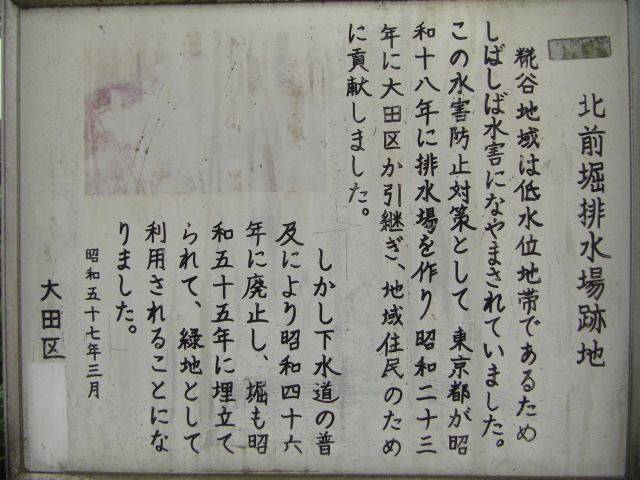 北前堀排水場跡地
糀谷地域は低水位地帯であるため
しばしば水害になやまされていました。
この水害防止対策として 東京都が昭
和十八年に排水場を作り 昭和二十三
年に大田区か引継ぎ、地域住民のため
に貢献しました。
しかし下水道の普
及により昭和四十六
年に廃止し、堀も昭
和五十五年に埋立て
られて、緑地として
利用されることにな
りました。
昭和五十七年三月
大田区